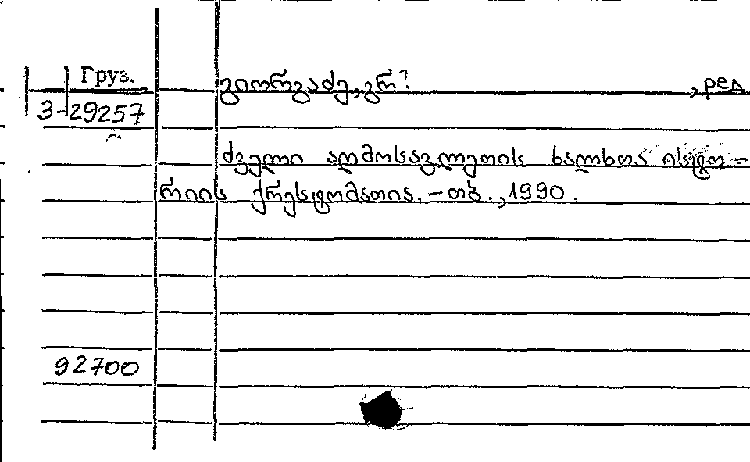 Груз.
გიორგაძე, გრ. , ред
3-29257
ძველი აღმოსავლეთის ხალხთა ისტო-
რიის ქრესტომათია. - თბ., 1990.
92700